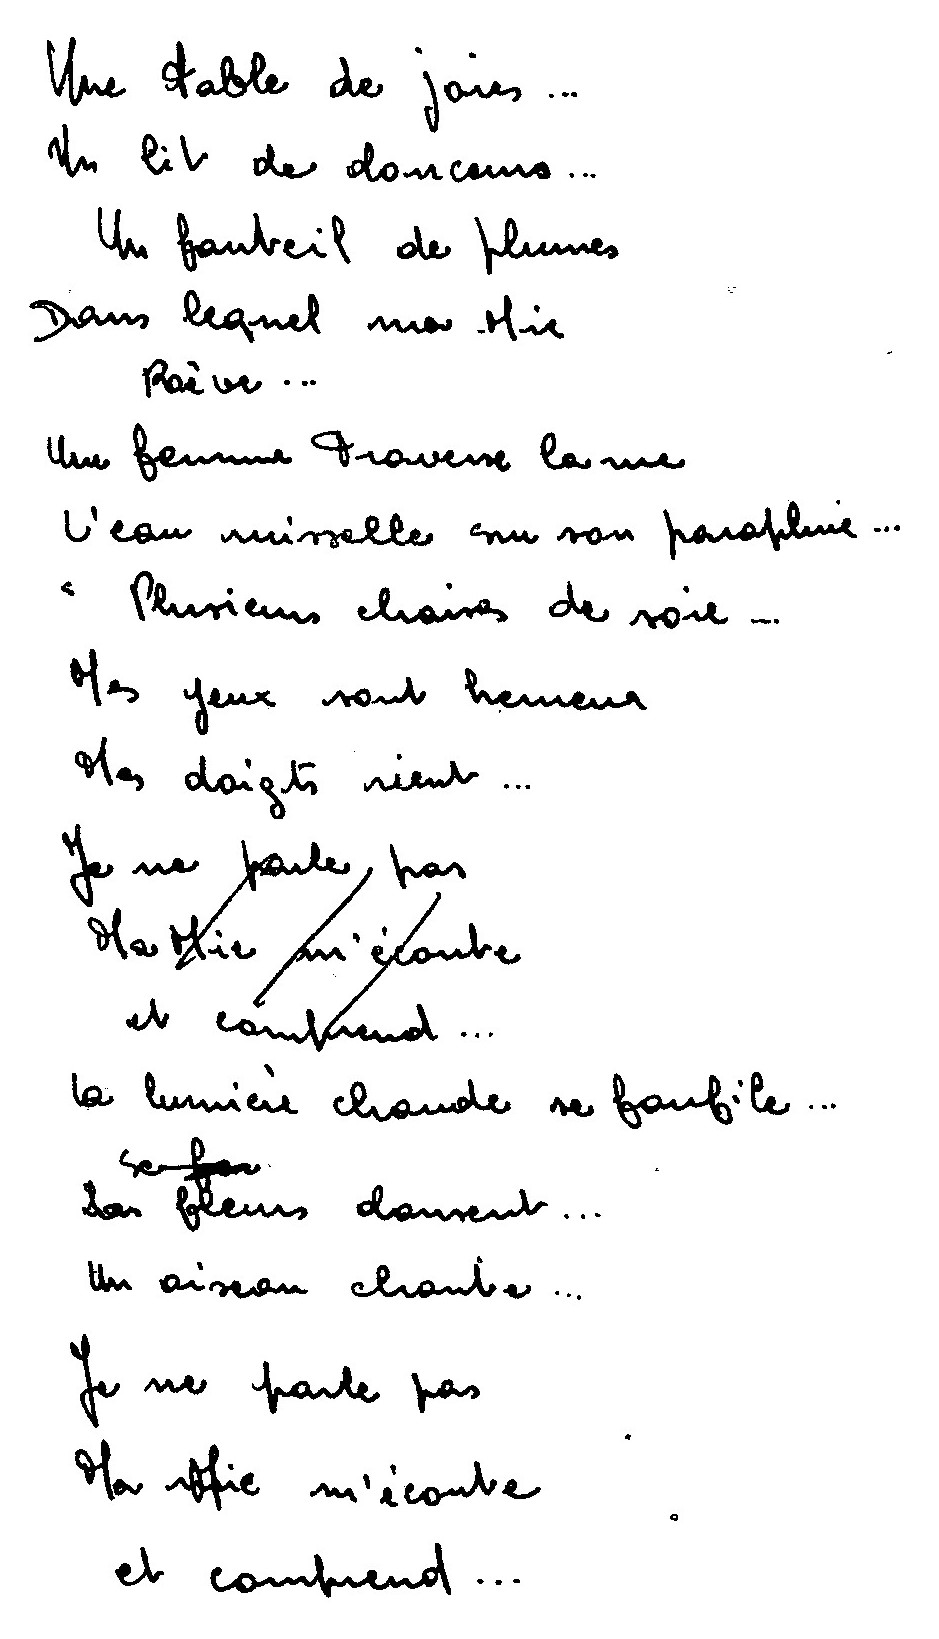 Une table de joies...
Un lit de douceurs...
Un fauteil de plumes
Dans lequel ma Mie
Raève...
Une femme Traverse la rue
L'eau ruisselle sur son parapluie...
Plusieurs chaises de soie...
Mes yeux sont heureux
Mes doigts rient...
Je ne parle pas
Ma Mie m'écoute
et comprend...
La lumière chaude se faufile...
Se fau
Les fleurs dansent...
Un oiseau chante...
Je ne parle pas
Ma Mie m'écoute
et comprend...